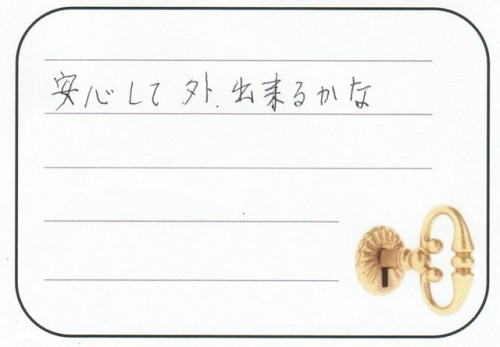 安心して外出来るかな